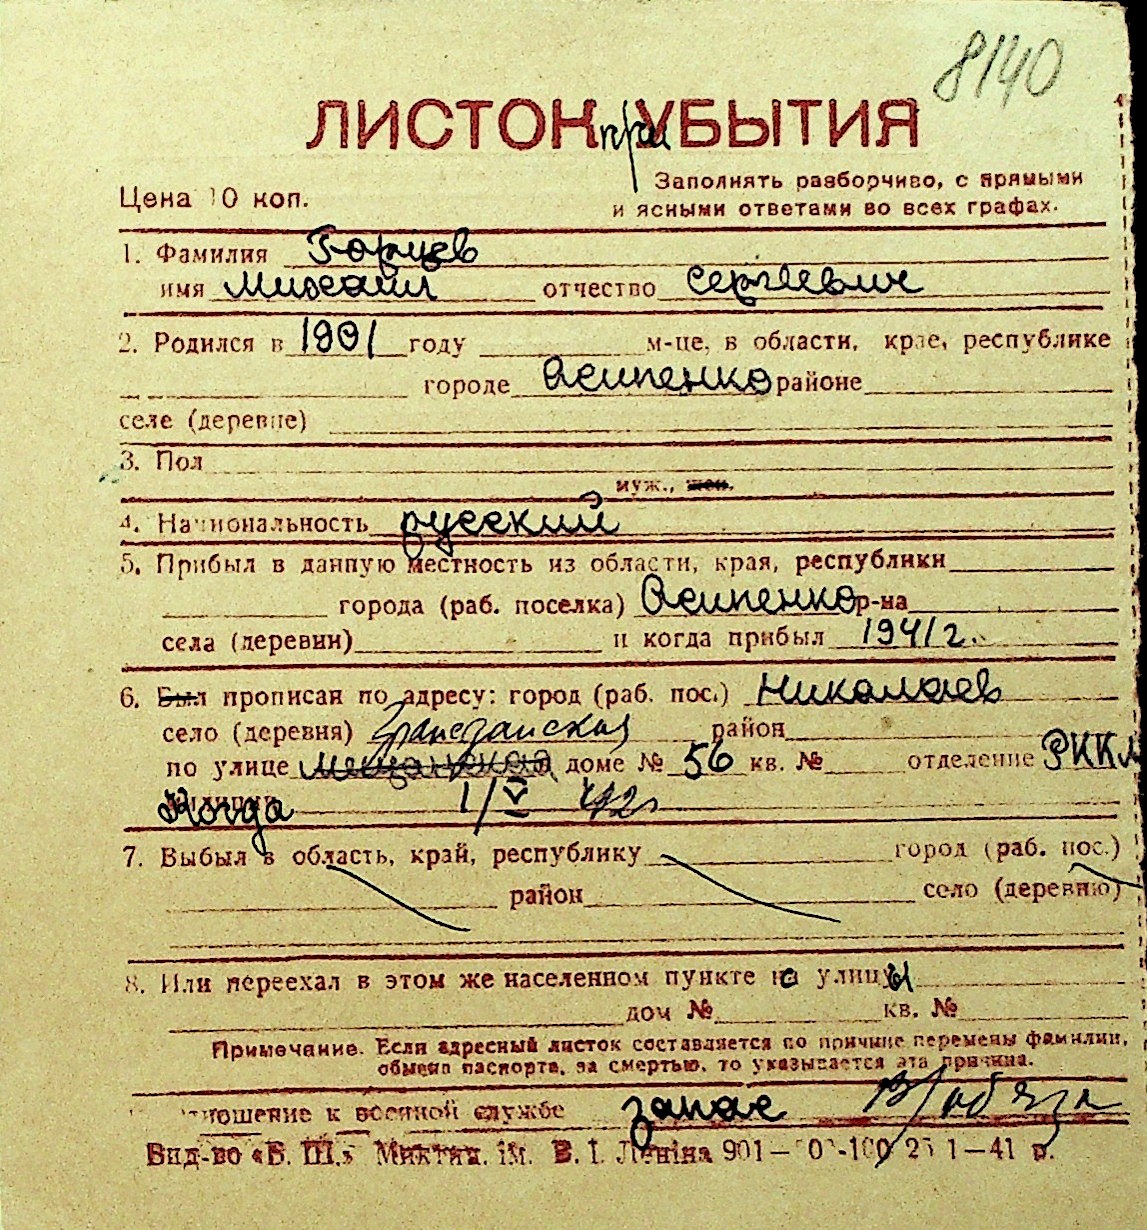 8140
ЛИСТОК при УБЫТИЯ
Заполнять разборчиво, с прямыми
Цена 10 коп.
и ясными ответами во всех графах.
1. Фамилия Борцев
имя Михаил отчество Сергеевич
2. Родился в 1901 году м-це, в области, крае, республике
городе Осипенко районе
селе (деревне)
3. Пол
муж., жен.
4. Национальность русский
5. Прибыл в данную местность из области, края, республики
города (раб. поселка) Осипенко р-на
села (деревни) и когда прибыл 1941 г.
6. Был прописан по адресу: город (раб. пос.) Николаев
село (деревня) Гражданская район
по улице Мещанская доме № 56 кв. № отделение РККМ
когда 1/V 42г
7. Выбыл в область, край, республику город (раб. пос.)
район село (деревню)
8. Или переехал в этом же населенном пункте с улицы
дом № кв. №
Примечание. Если адресный листок составляется по причине перемены фамилии,
обмена паспорта, за смертью, то указывается эта причина.
отношение к военной службе запас
Вид-во «Б. Ш.» Миктип. ім. В. І. Леніна 901— 1—41 р.